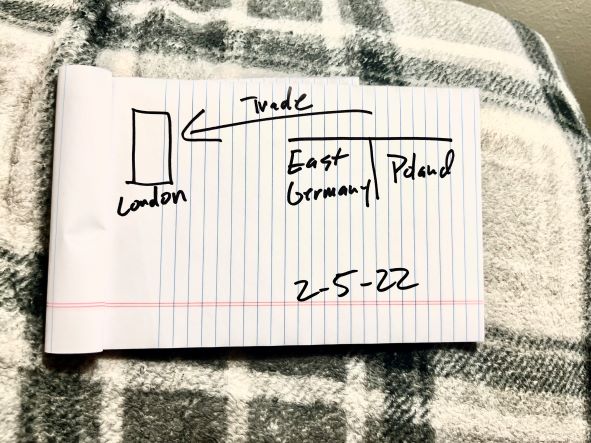 Trade
London
East
Germany
Poland
2-5-22